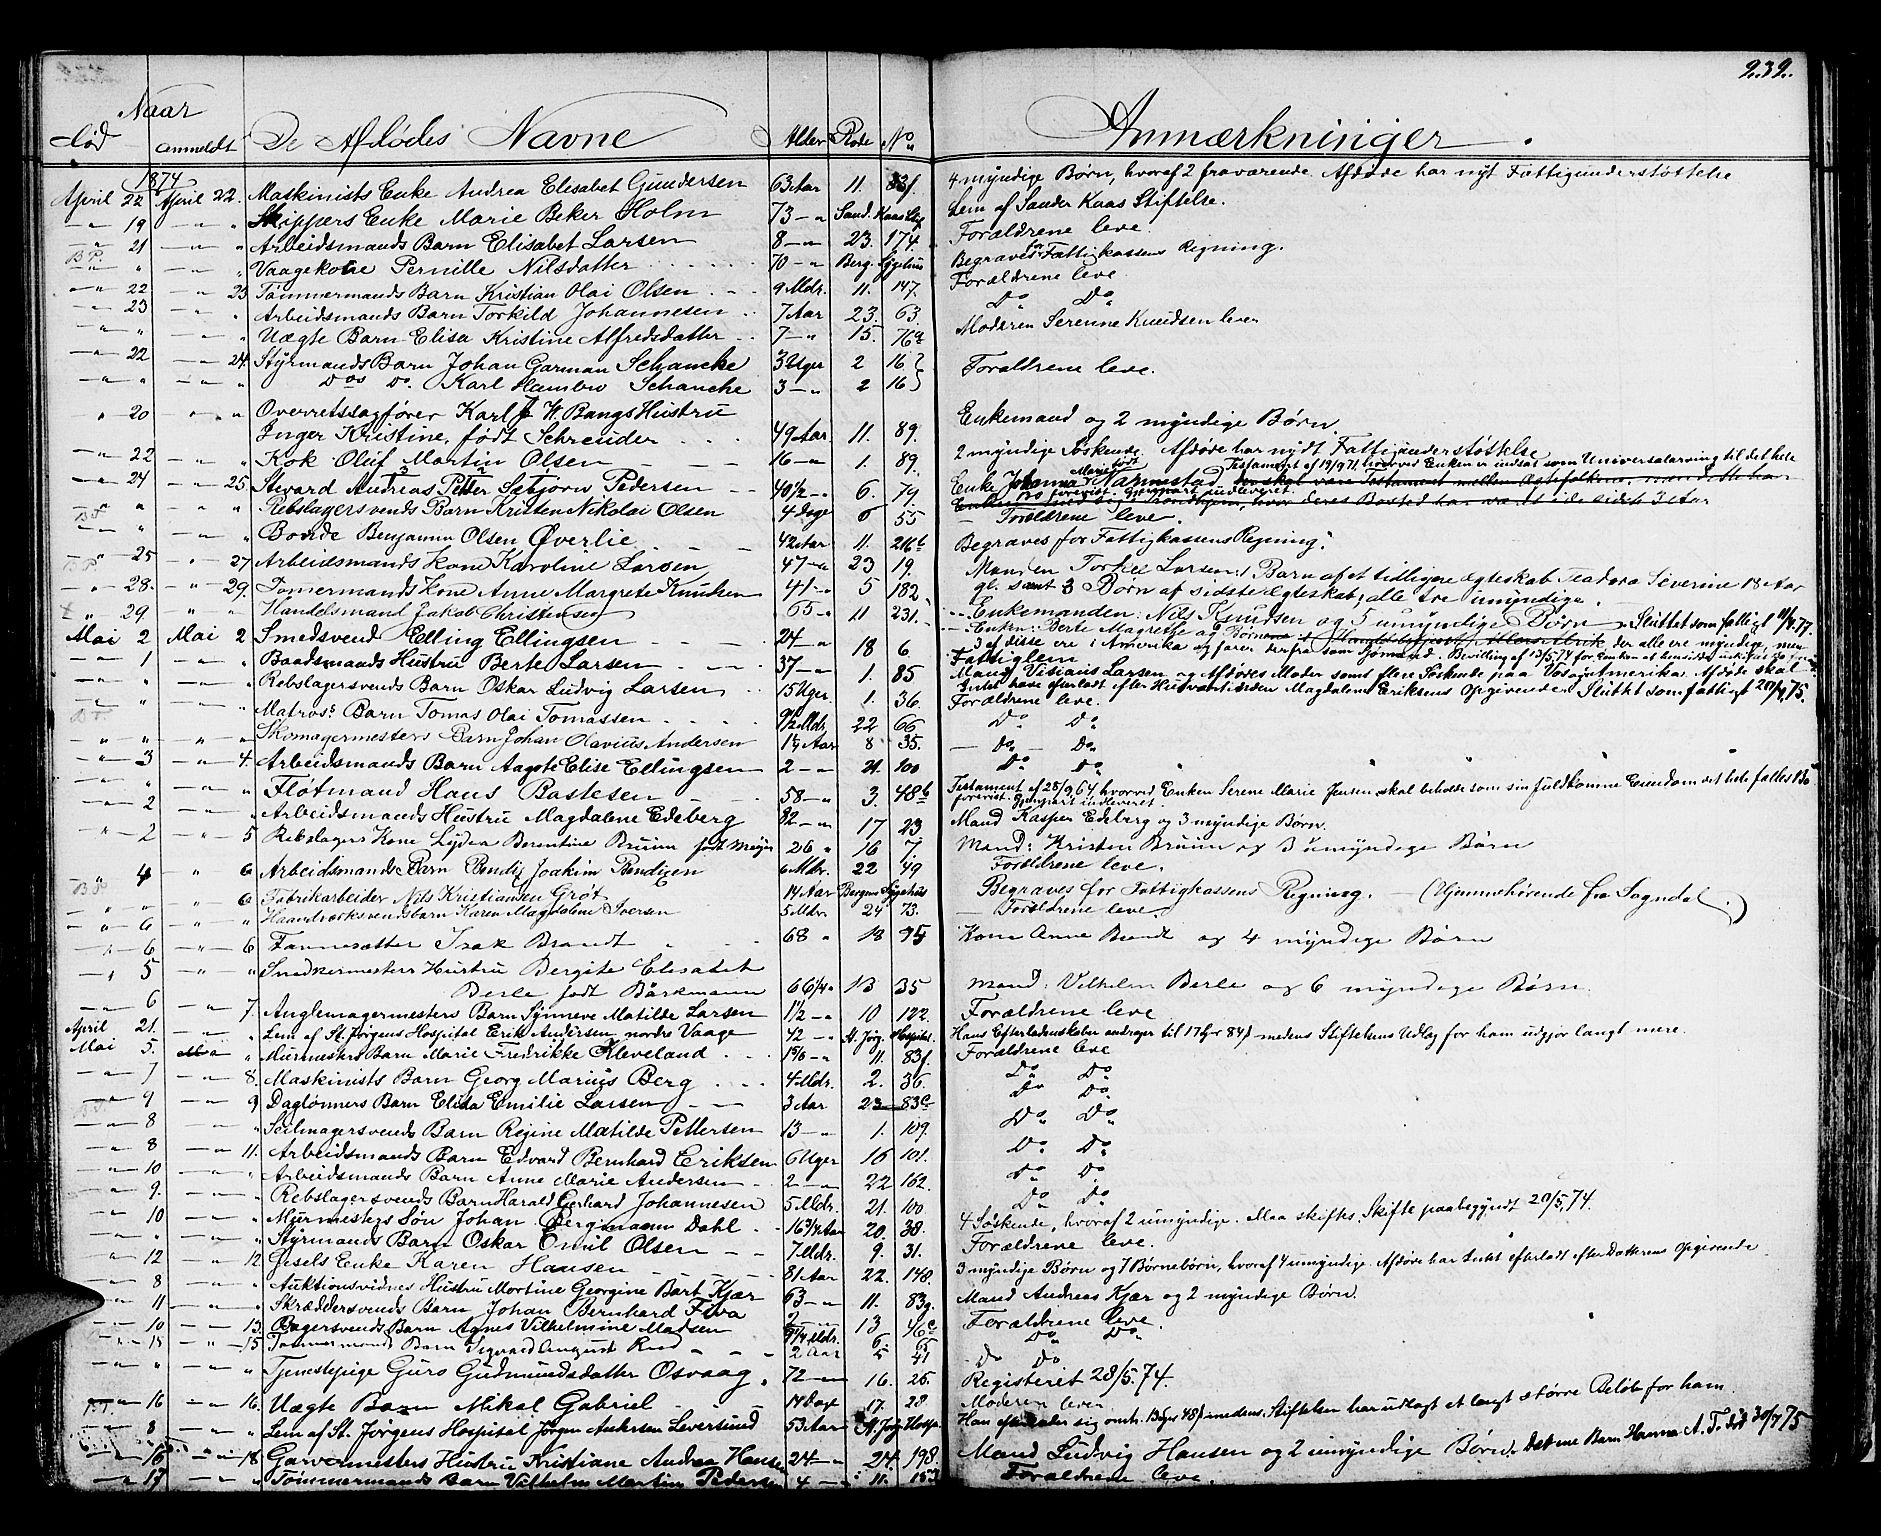 232.
Naar
død anmeldt De Afdødes Navne Alder Rode No Anmærkninger.
1874
April 22 April 22. Maskinists Enke Andrea Elisabet Gundersen 63 Aar 11. 83f. 4 myndige Børn, hvoraf 2 fraværende. Afdøde har nydt Fattigunderstøttelse
" 19 " " Skippers Enke Marie Beker Holm 73 " Sand. Kaas Stif Lem af Sander Kaas Stiftelse.
" 21 " " Arbeidsmands Barn Elisabet Larsen 8 " 23. 174. Forældrene leve.
B.F. " " " Vaagekone Pernille Nilsdatter 70 " Berg. Sygehus Begraves for Fattigkassens Regning.
" 22 " 23 Tømmermands Barn Kristian Olai Olsen 9 Mdr. 11. 147. Forældrene leve
" 23 " " Arbeidsmands Barn Torkild Johannesen 7 Aar 23. 63. Do Do
" " " " Uægte Barn Elisa Kristine Alfredsdatter 7 " 15. 76a Moderen Serenne Knudsen lever
" 22 " 24. Styrmands Barn Johan Garman Schancke 3 Uger 2 16 Forældrene leve.
" " " " Dos Do. Karl Hambro Schancke 3 " 2 16
" 20 " " Overretssagfører Karl W. Bangs Hustru
Inger Kristine, født Schreuder 49 Aar. 11. 89. Enkemand og 2 myndige Børn.
" 22 " " Kok Oluf Martin Olsen 16 " 1. 89. 2 myndige Søskende. Afdøde har nydt Fattigunderstøttelse
" 24 " 25. Stevard Andreas Petter Sæbjørn Pedersen 40 1/2 " 6. 79 Enke Johanna Marie født Nannestad Testament af 19/9 71, hvorved Enken er indsat som Universalarving til det hele
Bo forevist. Gjenpart indleveret.
" " " " Rebslagersvends Barn Kristen Nikolai Olsen 4 Dage 6 55 Forældrene leve.
B.F. " " " Bonde Benjamin Olsen Øverlie 42 Aar 11. 216b Begraves for Fattigkassens Regning.
" 25 " 27 Arbeidsmands Kone Karoline Larsen 47 " 23 19. Manden Torkel Larsen, 1 Barn af et tidligere Ægteskab Teadora Severine 18 Aar
gl. samt 3 Børn af sidste Ægteskab, alle tre umyndige.
" 28. " 29. Tømmermands Kone Anne Margrete Knudsen 41 " 5 182 Enkemanden: Nils Knudsen og 5 umyndige Børn. Sluttet som fattigt 11/8. 77.
" 29 " " Handelsmand Jakob Christensen 65 " 11 231. Enken: Berte Magrethe og Børnene der alle ere myndige, men
3 af disse ere i Amerika og farer derfra som Sømænd.
Mai 2 Mai 2 Smedsvend Elling Ellingsen 24 " 18 6 Fattiglem
" 1 " " Baadsmands Hustru Berte Larsen 37 " 1. 85 Mand Vitians Larsen og Afdødes Moder samt flere Søskende paa Vos og i Amerika. Afdøde skal
Intet have efterladt efter Husværtinden Magdalene Eriksens Opgivende. Sluttet som fattigt 20/4 75.
" " " " Rebslagersvends Barn Oskar Ludvig Larsen 15 Uger. 1. 36. Forældrene leve.
" " " " Matross Barn Tomas Olai Tomassen 9 1/2 Mdr. 22 66 Do Do
B.F. " " " " Skomagermesters Barn Johan Olavius Andersen 1 1/2 Aar 8 35. Do Do
" 3 " 4. Arbeidsmands Barn Aagote Elise Ellingsen 2 " 21. 100 Do Do
" " " " Fløtmand Hans Bastesen 58 " 3. 48b Testament af 25/9 64 hvorved Enken Serene Marie Jensen skal beholde som sin fuldkomne Eiendom det hele fælles Bo
forevist. Gjenpart indleveret.
" 2 " " Arbeidsmands Hustru Magdalene Edeberg 82 " 17 23 Mand Kasper Edeberg og 3 myndige Børn.
" 2 " 5 Rebslagers Kone Lydia Berentine Bruun født Meyer 26 " 16 7. Mand: Kristen Bruun og 3 umyndige Børn
" 4 " 6 Arbeidsmands Barn Bendix Joakim Bendixen 6 Mdr. 22 49 Forældrene leve.
B.F. " " " 6 Fabrikarbeider Nils Kristiansen Grøt 14 Aar Bergens Sygehus Begraves for Fattigkassens Regning. (Hjemmehørende fra Sogndal.)
" " " " Haandværksvends Barn Karen Magdalene Iversen 5 Mdr 24 73. Forældrene leve.
" 6 " 6 Fannesætter Isak Brandt 68 " 18 95 Kone Anne Brandt og 4 myndige Børn
" 5 " " Snedkermesters Hustru Bergite Elisabet
Berle født Bårkmann 66 1/4 " 13 35 Mand: Vilhelm Berle og 6 myndige Børn.
" 6 " 7. Anglemagermesters Barn Synneve Matilde Larsen 1 1/2 " 10 122. Forældrene leve
April 21. " " Lem af St. Jørgens Hospital Erik Andersen nordre Vaage 42 " St. Jørg. Hospital Hans Efterladenskaber andrager til 17 Spd 84 ß medens Stiftelsens Udlæg for ham udgjør langt mere.
Mai 5. " " Murmesters Barn Marie Fredrikke Kleveland 1 " 11. 83f. Forældrene leve
" 7 " 8. Maskinists Barn Georg Marius Berg 4 Mdr. 2. 36. Do Do
" 9 " 9 Dagløners Barn Elida Emilie Larsen 3 Aar 23 83c Do Do
" 8 " " Seilmagersvends Barn Regine Matilde Pettersen 13 " 1. 109. Do Do
" 8 " 11. Arbeidsmands Barn Edvard Bernhard Eriksen 6 Uger 16 101. Do Do
" 10 " " Arbeidsmands Barn Anne Marie Andersen 2 " 22 162. Do Do
" 9. " " Rebslagersvends Barn Harald Gerhard Johannesen 5 Mdr. 21. 100. Do Do
" 10 " " Murmesters Søn Johan Bergmann Dahl 16 3/4 Aar 20. 38. 4 Søskende, hvoraf 2 umyndige. Maa skiftes. Skifte paabegyndt 20/5. 74.
" " " " Styrmands Barn Oskar Emil Olsen 7 Mdr. 9. 31. Forældrene leve.
" 12 " 12. Gjsels Enke Karen Hansen 81 Aar 22. 148. 3 myndige Børn og 7 Børnebørn, hvoraf 4 umyndige. Afdøde har Intet efterladt efter Datterens Opgivende.
" 8 " " Auktionsvidnes Hustru Mortine Georgine Bart Kjær 63 " 11. 83g. Mand Andreas Kjær og 2 myndige Børn.
" 11 " " Skræddersvends Barn Johan Bernhard Fiva 2 13 46c Forældrene leve.
" 10 " 13. Bagersvends Barn Agnes Vilhelmine Madsen 9 1/4 Mdr. 6. 65 Do Do
" 15 " 15 Tømmermands Barn Sigvard August Rud 2 Aar 5 41 Do Do
" " " " Tjenestepige Guro Gudmundsdatter Osvaag. 72 " 16. 26. Registeret 28/5. 74.
" 16 " 16. Uægte Barn Mikal Gabriel 14 Dage 17. 28 Moderen lever
" 8 " " Lem af St. Jørgens Hospital Jørgen Andersen Leversund 53 Aar St. Jørg. Hospi. Han efterlader sig omtr. 13 Spd 48 ß medens Stiftelsen har udlagt et langt større Beløb for ham
" 16 " 18. Garvermesters Hustru Kristiane Andrea Hansen 24 " 24. 198. Mand Ludvig Hansen og 2 umyndige Børn. Det ene Barn Hanna A. T. død 30/7 75
" 17 " " Tømmermands Barn Vilhelm Martin Pedersen 4 " 11. 153 Forældrene leve.